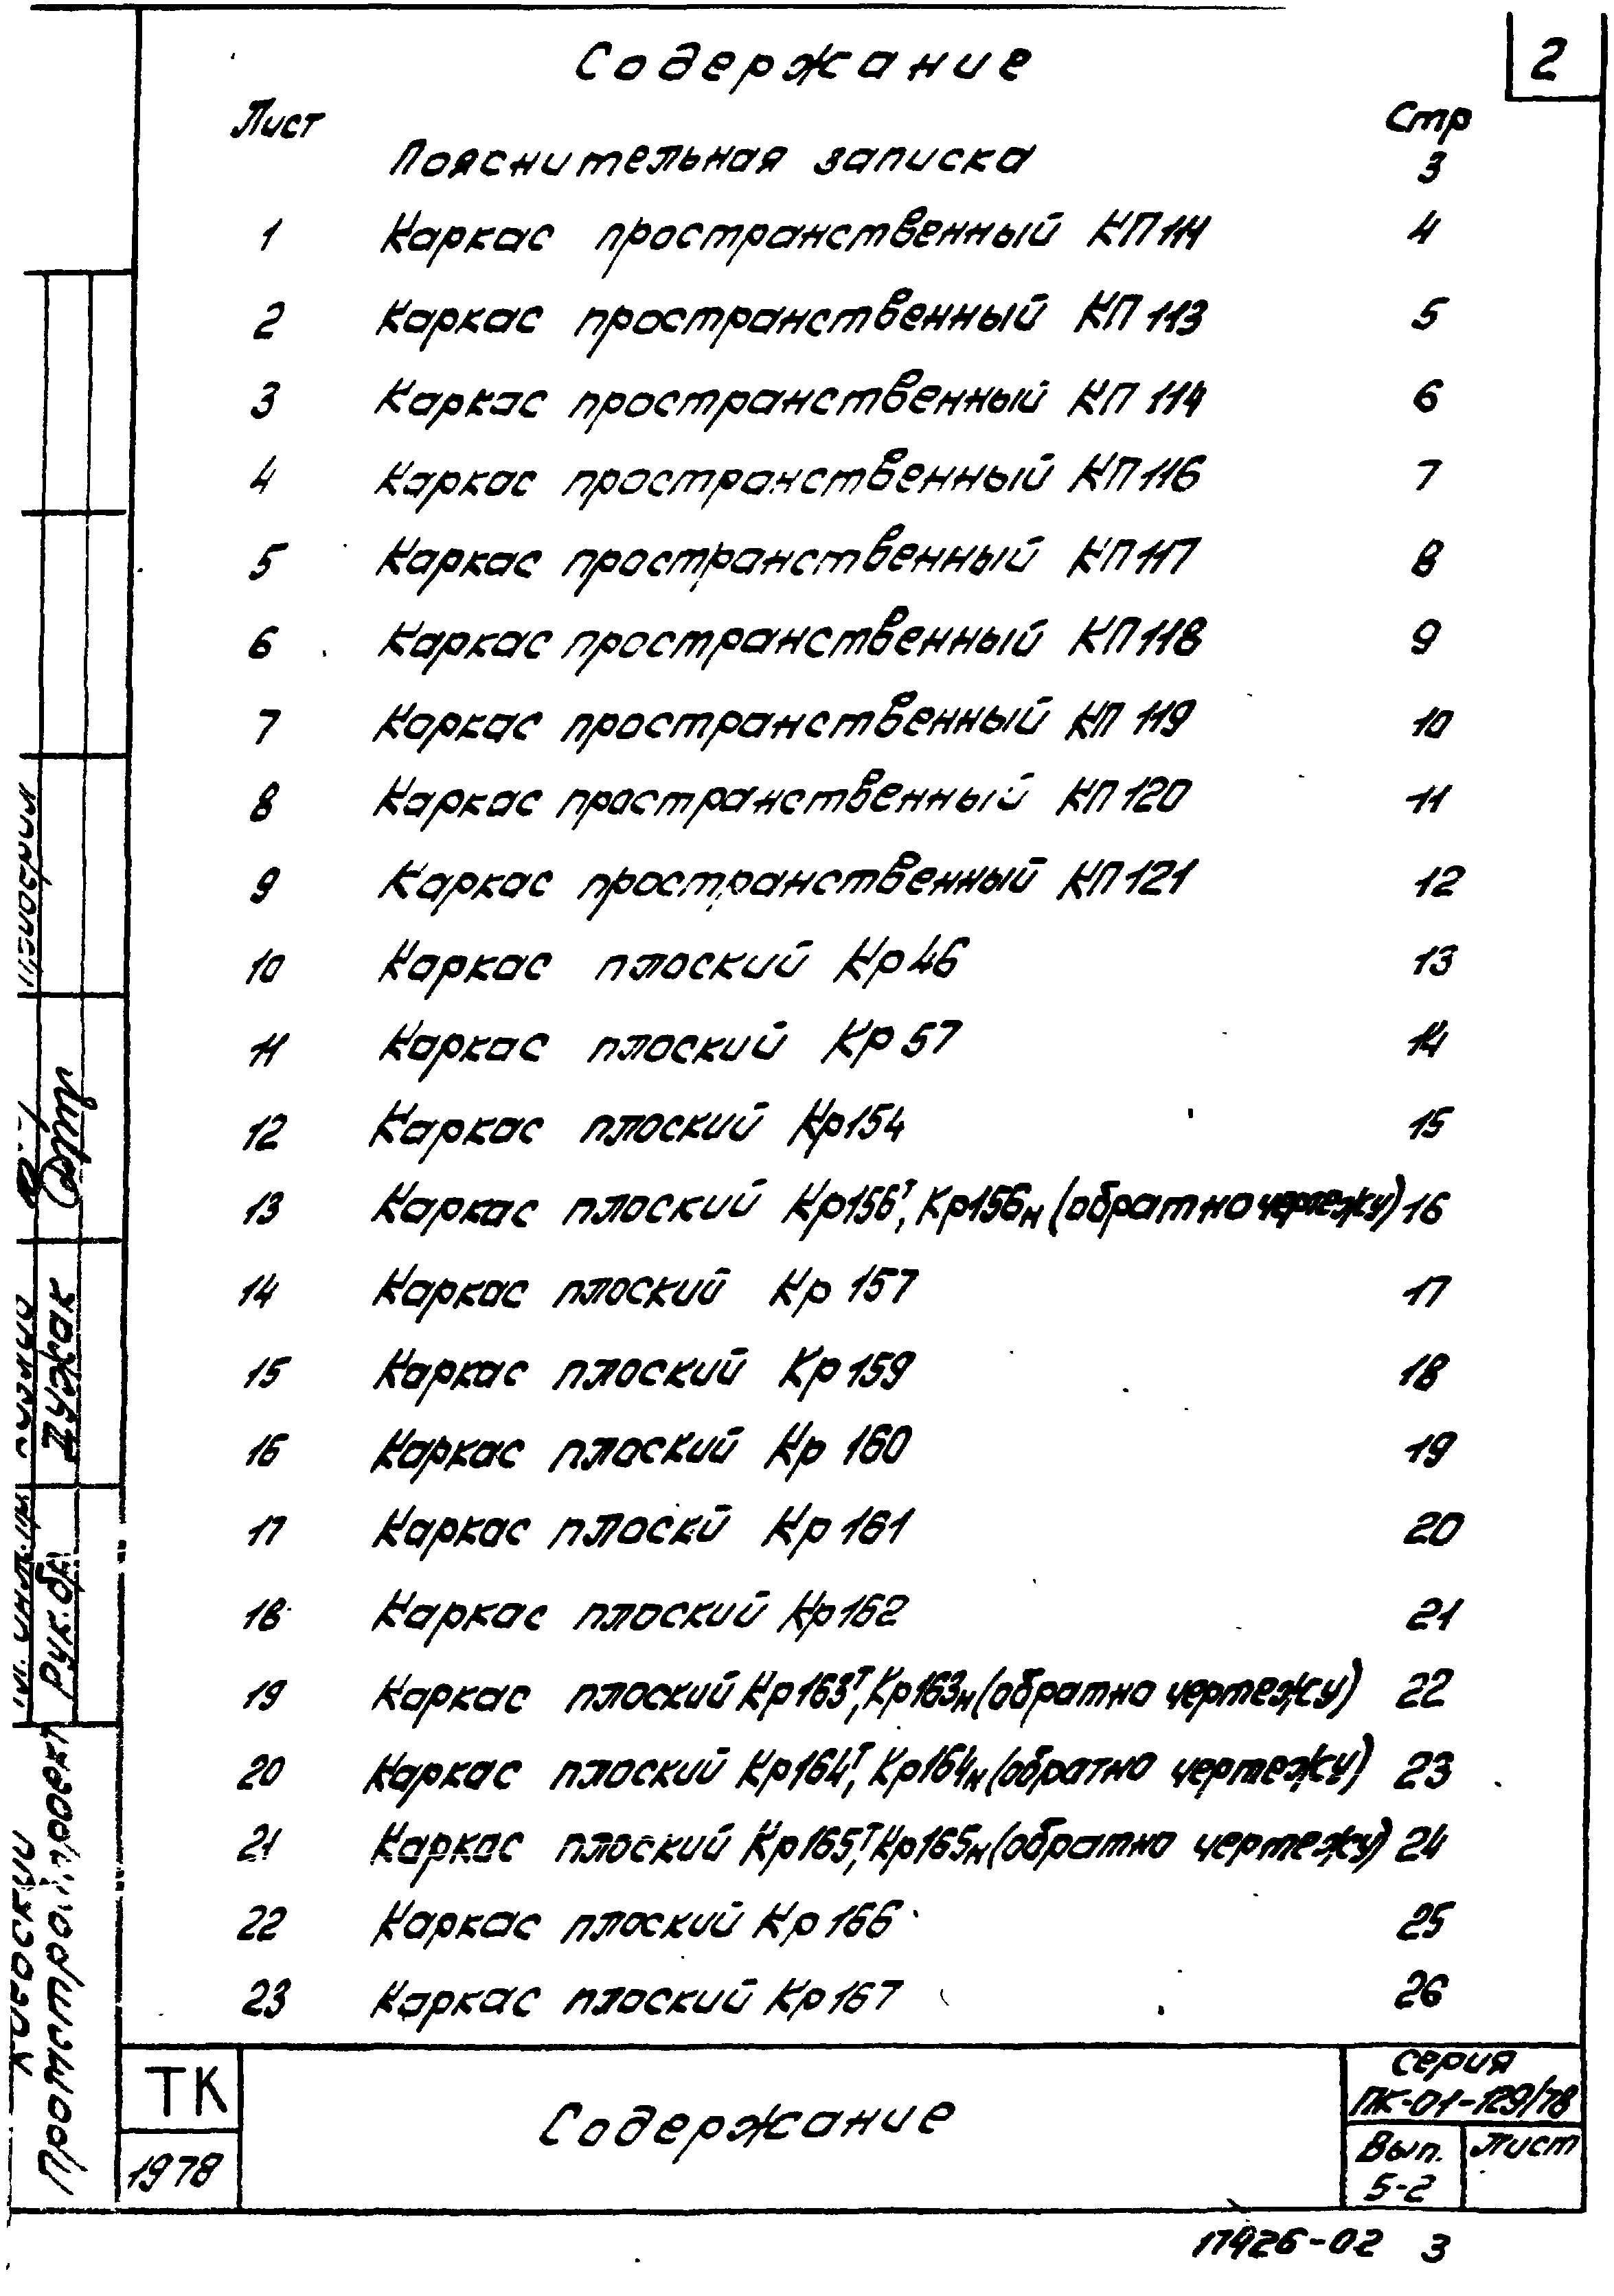 2
Содержание
Лист Стр
Пояснительная записка 3
1 Каркас пространственный КП 114 4
2 Каркас пространственный КП 113 5
3 Каркас пространственный КП 114 6
4 Каркас пространственный КП 116 7
5 Каркас пространственный КП 117 8
6 Каркас пространственный КП 118 9
7 Каркас пространственный КП 119 10
8 Каркас пространственный КП 120 11
9 Каркас пространственный КП 121 12
10 Каркас плоский Кр 46 13
11 Каркас плоский Кр 57 14
12 Каркас плоский Кр154 15
13 Каркас плоский Кр156т, Кр156н (обратно чертежу) 16
14 Каркас плоский Кр 157 17
15 Каркас плоский Кр 159 18
16 Каркас плоский Кр 160 19
17 Каркас плоскй Кр 161 20
18 Каркас плоский Кр162 21
19 Каркас плоский Кр163т, Кр163н (обратно чертежу) 22
20 Каркас плоский Кр164т, Кр164н (обратно чертежу) 23
21 Каркас плоский Кр165т, Кр165н (обратно чертежу) 24
22 Каркас плоский Кр 166 25
23 Каркас плоский Кр 167 26
ТК
1978
Содержание
серия
ПК-01-129/78
Вып. Лист
5-2
17426-02 3
Киевский
Промстройпроект
Рук. бр. Дужак